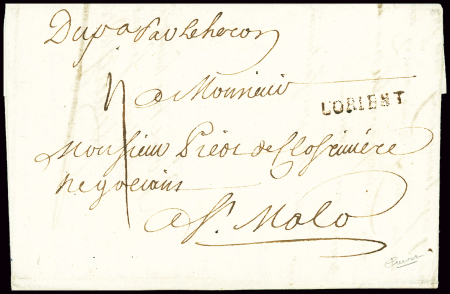 Dupo Par Lehoron
a Monsieur
L'ORIENT
Monsieur Piéot de Closrivière
Negociant
a St. Malo